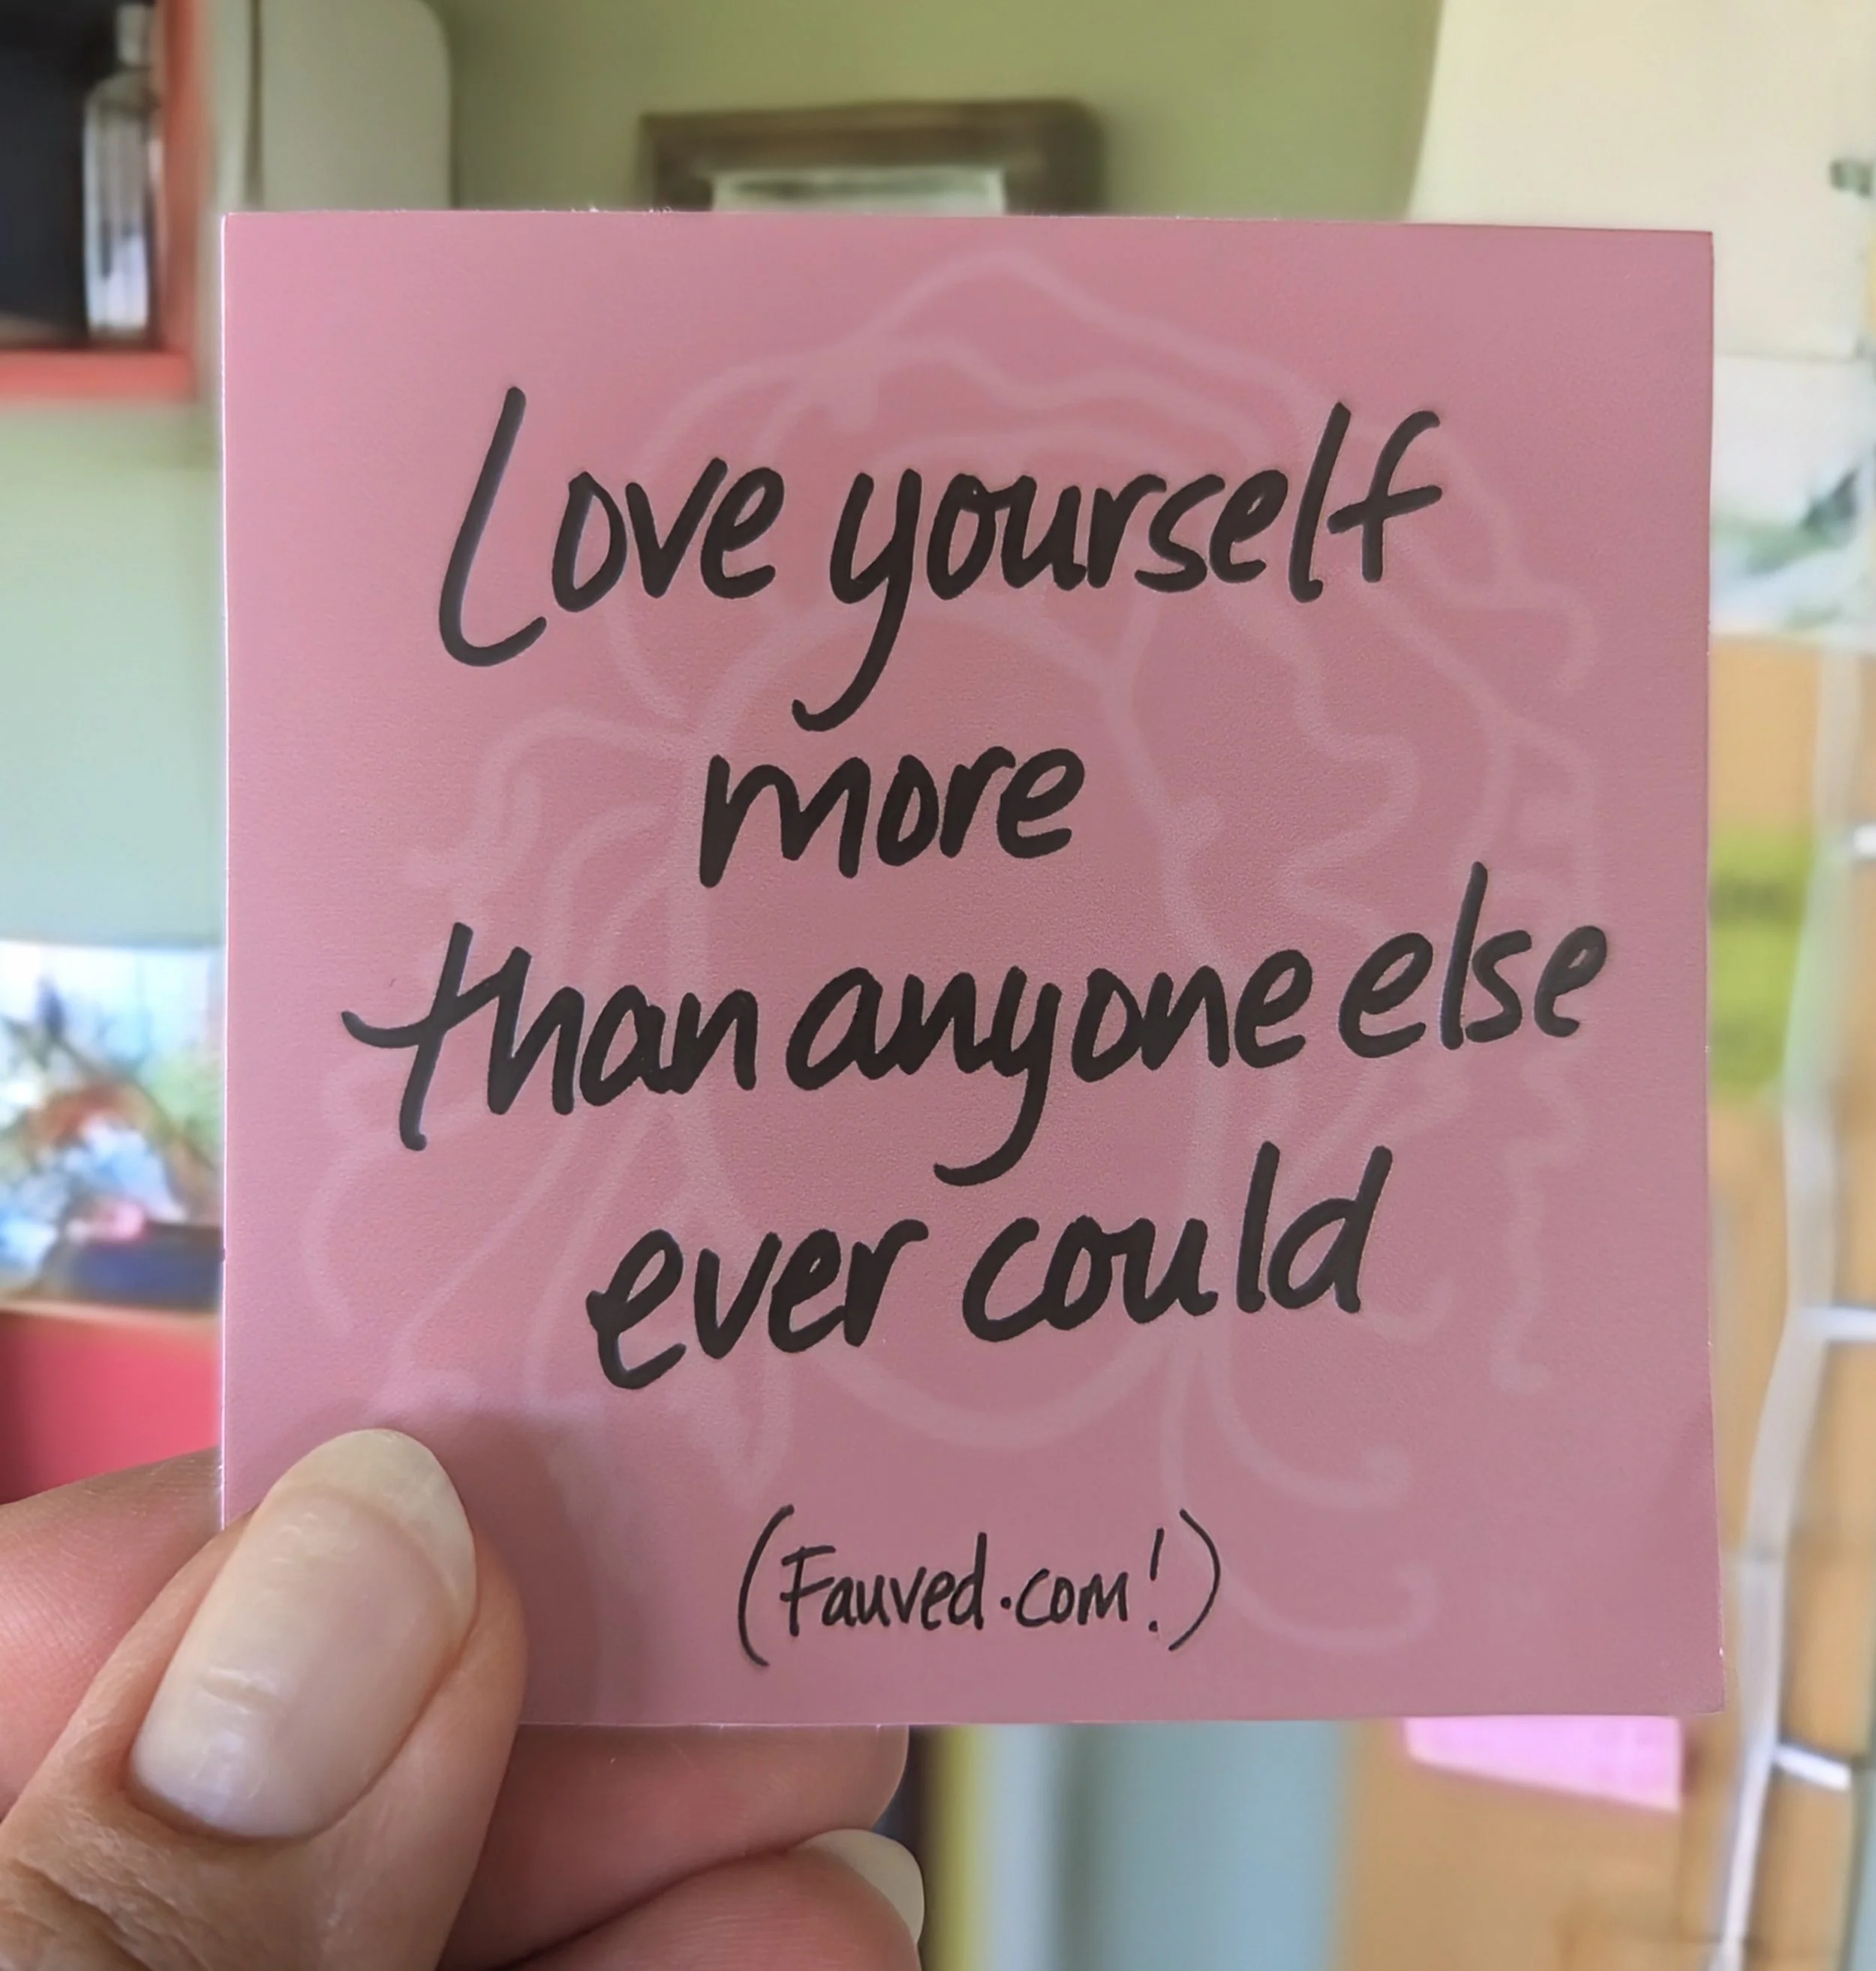 Love yourself
more
than anyone else
ever could
(Fauved.com!)